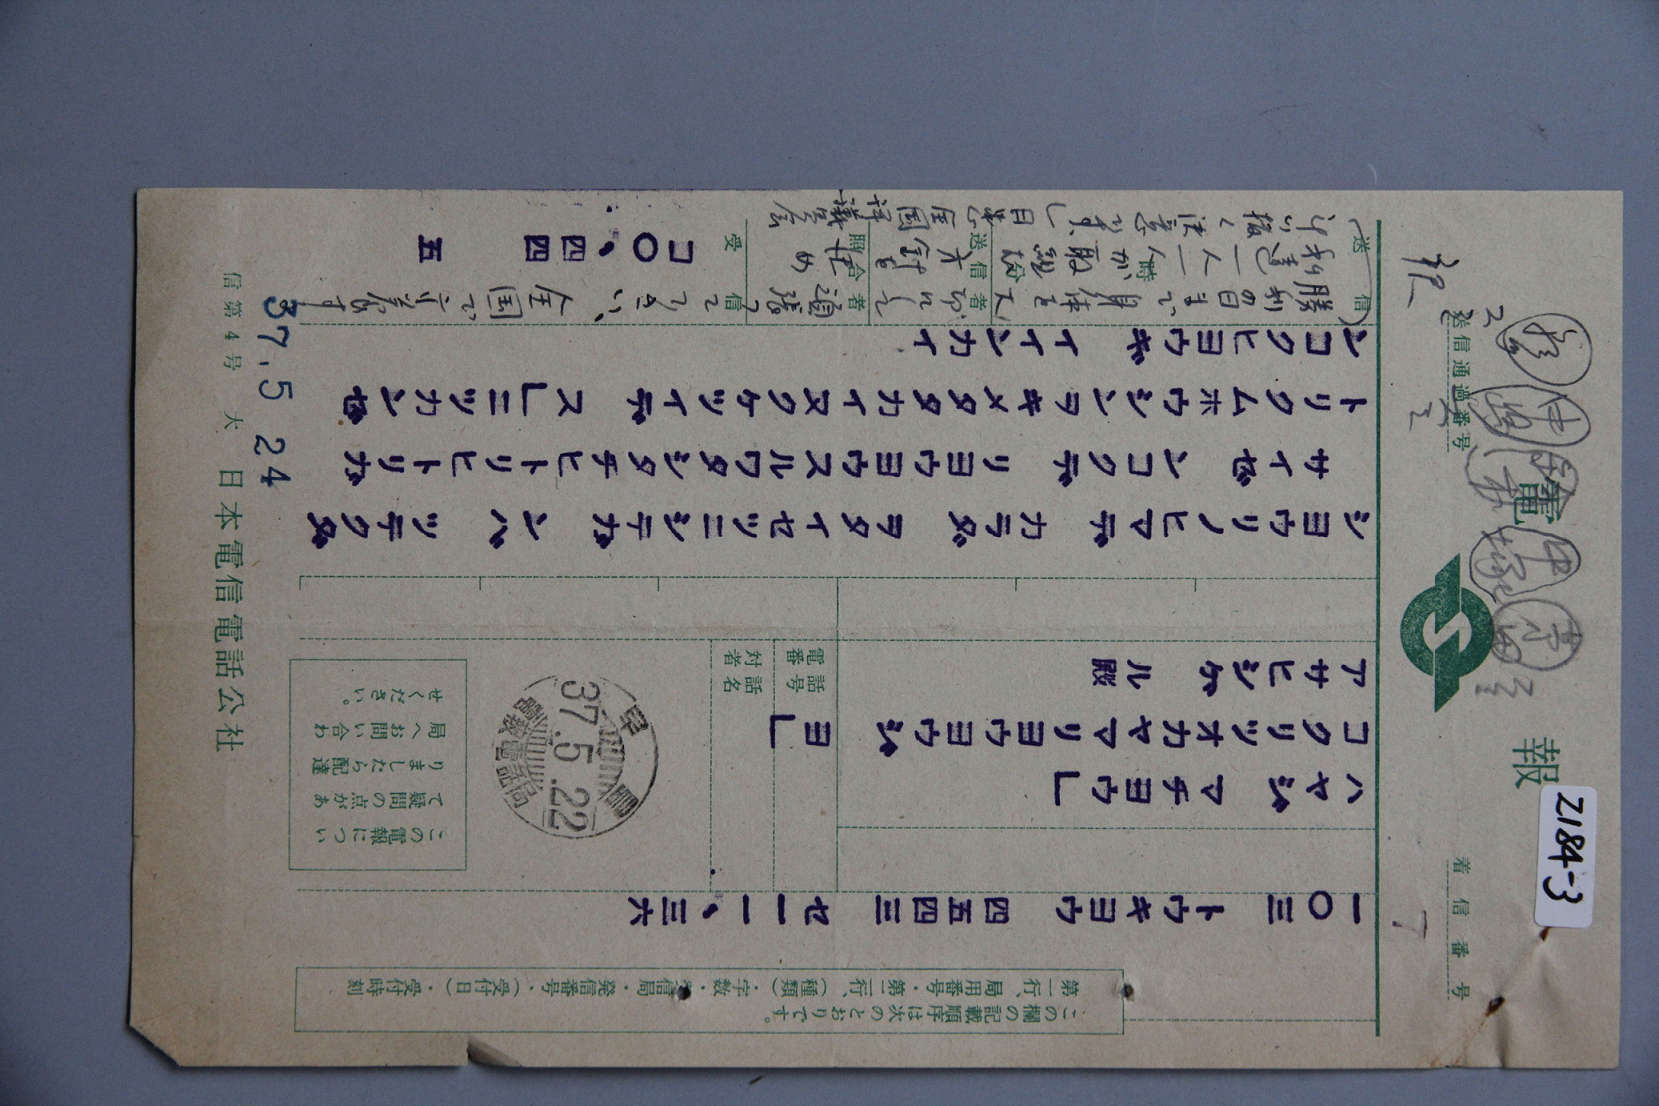 電報
着信番号
送信通過番号
2184-3
この欄の記載順序は次のとおりです。
第一行、局用番号・第二行、(種類)・字数・発信局・発信番号・(受付日)・受付時刻
一〇三 トウキヨウ 四五四三 セ一一・三六
ハヤジ マチヨウ」
コクリツオカヤマリヨウヨウジ ヨ」
アサヒシゲ ル殿
電話番号
対話者名
早島
37.5.22
電報電話局
この電報につい
て疑問の点があ
りましたら配達
局へお問い合わ
せください。
シヨウリノヒマデ カラダ ヲタイセツニシテガ ン バ ツテクダ
サイゼ ンコクデ リヨウヨウスルワタシタチヒトリヒトリガ
トリクムホウシンヲキメタタカイヌクケツイデ ス」ニツカンゼ
ンコクヒヨウギ イインカイ
送信
時分
送信者
照会者
受信
コ〇・四四 五
勝利の日まで身体を大切にして頑張って下さい、全国で療養す
る私達一人一人が、取組む方針を決め
斗い抜く決意です」日患全国評議委員会
37.5.24
信第4号 大 日本電信電話公社